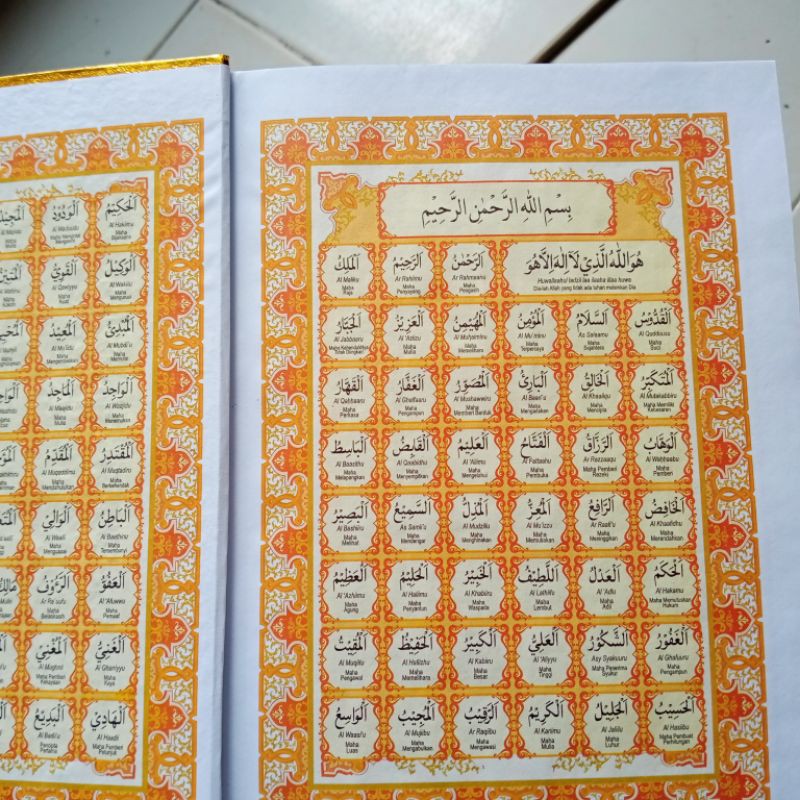 بِسْمِ اللهِ الرَّحْمٰنِ الرَّحِيْمِ
هُوَاللهُ الَّذِيْ لَآ اِلٰهَ اِلَّا هُوَ
Huwallaahul ladzii laa ilaaha illaa huwa
Dia-lah Allah yang tidak ada tuhan melainkan Dia
اَلرَّحْمٰنُ
Ar Rahmaanu
Maha
Pengasih
اَلرَّحِيْمُ
Ar Rahiimu
Maha
Penyayang
اَلْمَلِكُ
Al Maliku
Maha
Raja
اَلْقُدُّوْسُ
Al Qudduusu
Maha
Suci
اَلسَّلَامُ
As Salaamu
Maha
Sejahtera
اَلْمُؤْمِنُ
Al Mu'minu
Maha
Terpercaya
اَلْمُهَيْمِنُ
Al Muhaiminu
Maha
Memelihara
اَلْعَزِيْزُ
Al 'Aziizu
Maha
Mulia
اَلْجَبَّارُ
Al Jabbaaru
Maha Kehendaknya
Tidak Diingkari
اَلْمُتَكَبِّرُ
Al Mutakabbiru
Maha Memiliki
Kebesaran
اَلْخَالِقُ
Al Khaaliqu
Maha
Mencipta
اَلْبَارِئُ
Al Baari'u
Maha
Mengadakan
اَلْمُصَوِّرُ
Al Mushawwiru
Maha
Memberi Bentuk
اَلْغَفَّارُ
Al Ghaffaaru
Maha
Pengampun
اَلْقَهَّارُ
Al Qahhaaru
Maha
Perkasa
اَلْوَهَّابُ
Al Wahhaabu
Maha
Pemberi
اَلرَّزَّاقُ
Ar Razzaaqu
Maha Pemberi
Rezeki
اَلْفَتَّاحُ
Al Fattaahu
Maha
Pembuka
اَلْعَلِيْمُ
Al 'Aliimu
Maha
Mengetahui
اَلْقَابِضُ
Al Qaabidhu
Maha
Menyempitkan
اَلْبَاسِطُ
Al Baasithu
Maha
Melapangkan
اَلْخَافِضُ
Al Khaafidhu
Maha
Merendahkan
اَلرَّافِعُ
Ar Raafi'u
Maha
Meninggikan
اَلْمُعِزُّ
Al Mu'izzu
Maha
Memuliakan
اَلْمُذِلُّ
Al Mudzillu
Maha
Menghinakan
اَلسَّمِيْعُ
As Samii'u
Maha
Mendengar
اَلْبَصِيْرُ
Al Bashiiru
Maha
Melihat
اَلْحَكَمُ
Al Hakamu
Maha Memutuskan
Hukum
اَلْعَدْلُ
Al 'Adlu
Maha
Adil
اَللَّطِيْفُ
Al Lathiifu
Maha
Lembut
اَلْخَبِيْرُ
Al Khabiiru
Maha
Waspada
اَلْحَلِيْمُ
Al Haliimu
Maha
Penyantun
اَلْعَظِيْمُ
Al 'Azhiimu
Maha
Agung
اَلْغَفُوْرُ
Al Ghafuuru
Maha
Pengampun
اَلشَّكُوْرُ
Asy Syakuuru
Maha Penerima
Syukur
اَلْعَلِيُّ
Al 'Aliyyu
Maha
Tinggi
اَلْكَبِيْرُ
Al Kabiiru
Maha
Besar
اَلْحَفِيْظُ
Al Hafiizhu
Maha
Memelihara
اَلْمُقِيْتُ
Al Muqiitu
Maha
Pengawal
اَلْحَسِيْبُ
Al Hasiibu
Maha Pembuat
Perhitungan
اَلْجَلِيْلُ
Al Jaliilu
Maha
Luhur
اَلْكَرِيْمُ
Al Kariimu
Maha
Mulia
اَلرَّقِيْبُ
Ar Raqiibu
Maha
Mengawasi
اَلْمُجِيْبُ
Al Mujiibu
Maha
Mengabulkan
اَلْوَاسِعُ
Al Waasi'u
Maha
Luas
اَلْحَكِيْمُ
Al Hakiimu
Maha
Bijaksana
اَلْوَدُوْدُ
Al Waduudu
اَلْوَكِيْلُ
Al Wakiilu
Maha
Mengurusi
اَلْقَوِيُّ
Al Qawiyyu
Maha
Kuat
اَلْمُبْدِئُ
Al Mubdi'u
Maha
Memulai
اَلْمُعِيْدُ
Al Mu'iidu
Maha
اَلْوَاجِدُ
Al Waajidu
Maha
Menemukan
اَلْمَاجِدُ
Al Maajidu
Maha
Mulia
اَلْمُقْتَدِرُ
Al Muqtadiru
Maha
Berkehendak
اَلْمُقَدِّمُ
Al Muqaddimu
Maha
Mendahulukan
اَلْبَاطِنُ
Al Baathinu
Maha
Tersembunyi
اَلْوَالِيْ
Al Waalii
Maha
Menguasai
اَلْعَفُوُّ
Al 'Afuwwu
Maha
Pemaaf
اَلرَّؤُوْفُ
Ar Ra'uufu
Maha
Belaskasih
اَلْغَنِيُّ
Al Ghaniyyu
Maha
Kaya
اَلْمُغْنِيْ
Al Mughnii
Maha Pemberi
Kekayaan
اَلْهَادِيْ
Al Haadii
Maha Pemberi
Petunjuk
اَلْبَدِيْعُ
Al Badii'u
Pencipta
Pertama